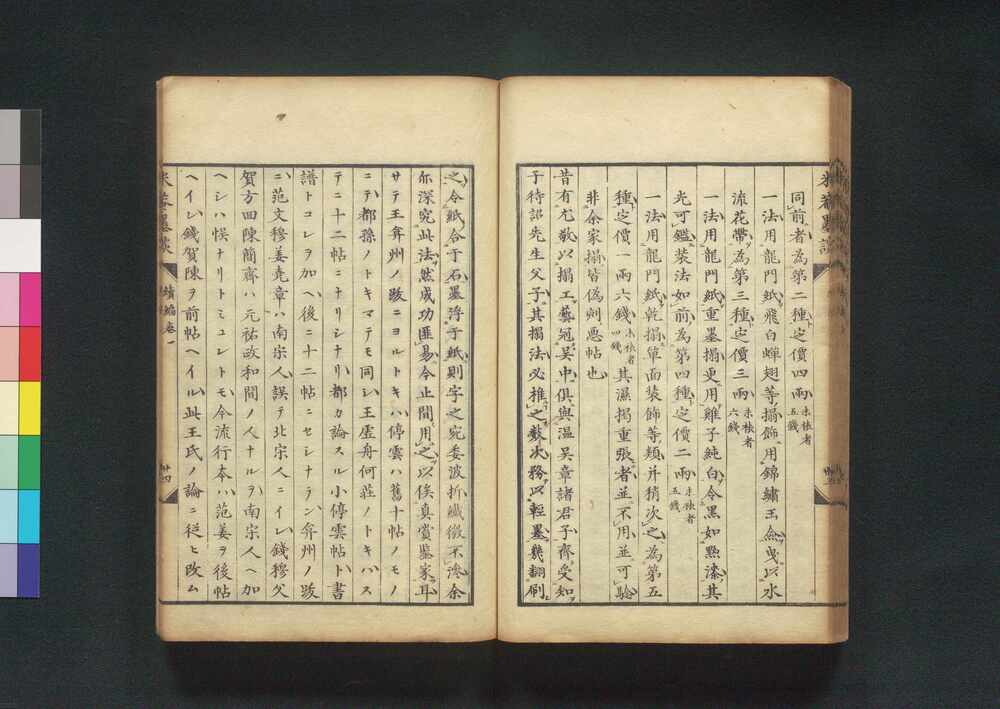 同前者為第二種定價四兩未裱者五錢
一法用龍門紙飛白蟬翅等搨飾用錦繡玉僉曳以水
流花帶為第三種定價三兩未裱者六錢
一法用龍門紙重墨搨更用雞子純白令黑如點漆其
光可鑑装法如前為第四種定價二兩未裱者五錢
一法用龍門紙乾搨單面装飾等類并稍次之為第五
種定價一兩六錢未裱者四錢其濕搨重張者並不用並可驗
非余家搨皆偽刻悪帖也
昔有尤敬以搨工藝冠吳中俱與溫吳章諸君子齊受知
于待詔先生父子其搨法必推之藪次務以輕墨幾翻刷
之令紙合于石墨浮于紙則字之宛委波折纖微不渗余
尓深究此法然成功匪易今止間用之以俟真賞鑒家耳
サテ王弇州ノ跋ニヨルトキハ停雲ハ舊十帖ノモノ
ニテ都穆ノトキマテモ同シ王虚舟何莊ノトキハス
テニ十二帖ニナリシナリ都カ論スル小停雲帖ト書
譜トコレヲ加ヘ後ニ十二帖ニセシナラン弇州ノ跋
ニ范文穆姜堯章ハ南宗人誤テ北宗人ニイレ錢穆父
賀方回陳簡齋ハ元祐政和間ノ人ナルヲ南宗人ヘ加
ヘシハ悞ナリトミユレトモ今流行本ハ范姜ヲ後帖
ヘイレ錢賀陳ヲ前帖ヘイル此王氏ノ論ニ従ヒ改ム
米菴墨談
續編卷一
廿四